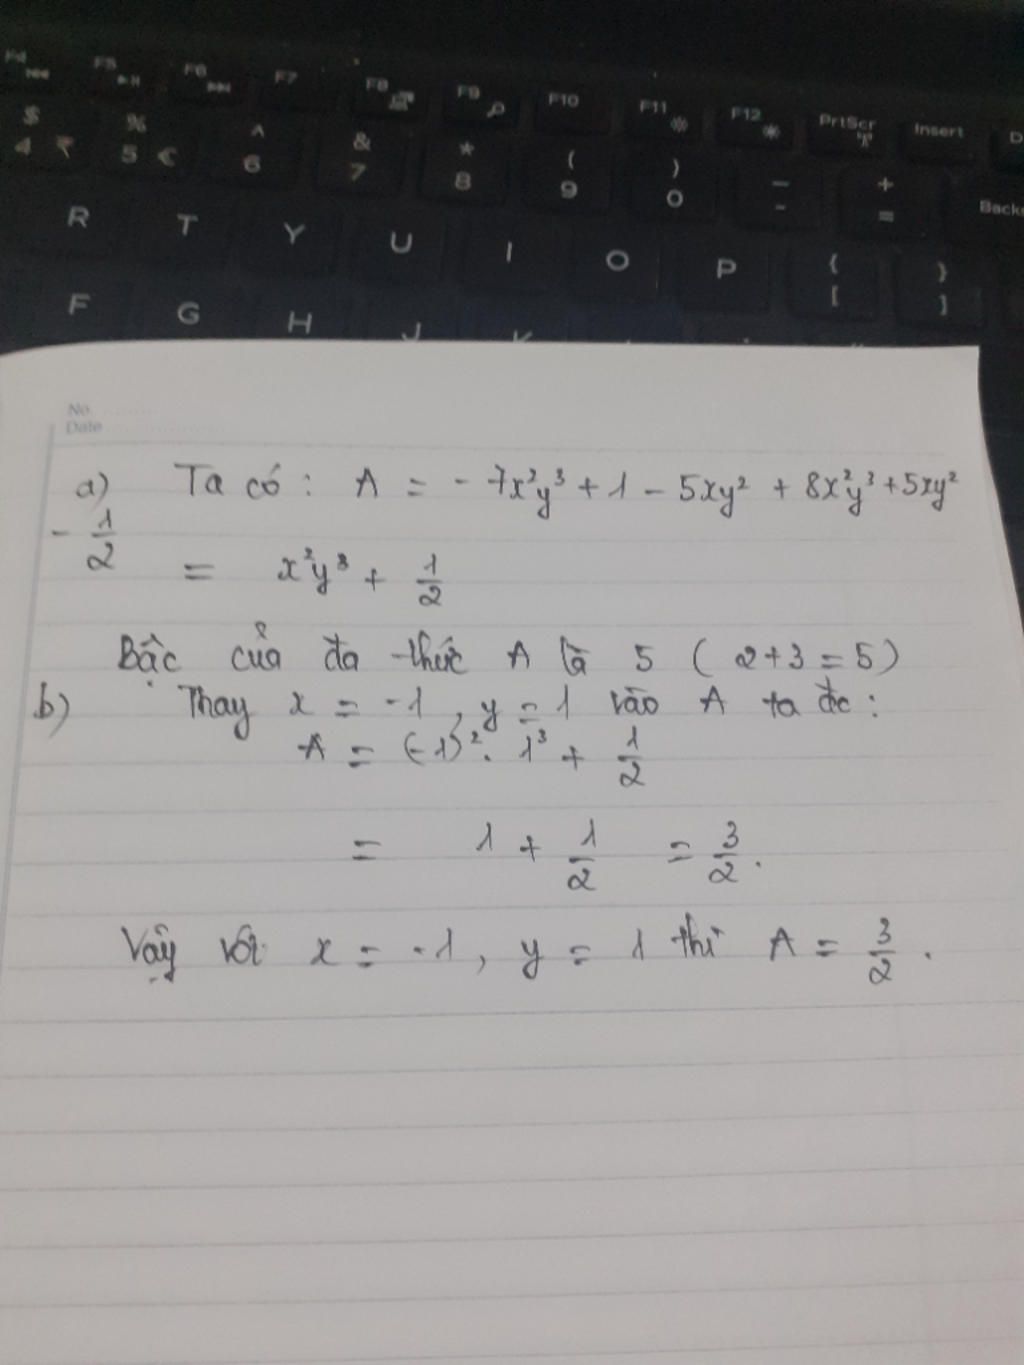 F4 F5 F6 F7 F8 F9 F10 F11 F12 PrtScr Insert D
$ % ^ & * ( ) _ + Backs
4 ₹ 5 € 6 7 8 9 0 - =
R T Y U I O P { }
[ ]
F G H J K
No.
Date
a) Ta có : A = - 7x²y³ + 1 - 5xy² + 8x²y³ + 5xy²
- 1/2
= x²y³ + 1/2
Bậc của đa thức A là 5 ( 2+3 = 5)
b) Thay x = -1 , y = 1 vào A ta đc :
A = (-1)² . 1³ + 1/2
= 1 + 1/2 = 3/2 .
Vậy với x = -1 , y = 1 thì A = 3/2 .